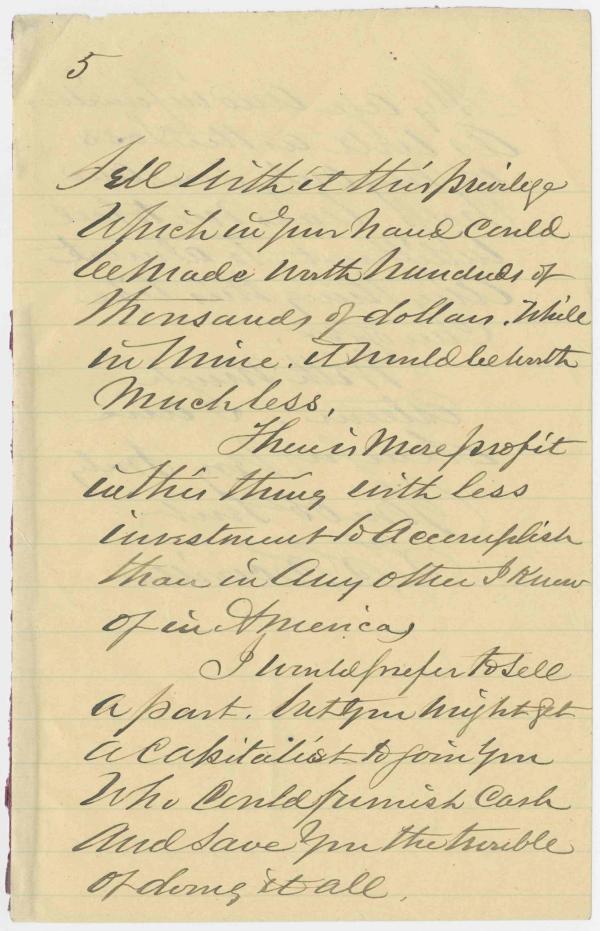 5
Sell with it this privilege
Which in your hand could
be Made worth hundreds of
thousands of dollars. While
in Mine. it would be worth
Much less.
There is More profit
in this thing with less
investment to Accomplish
than in Any other I Know
of in America,
I would prefer to Sell
a part. but you Might get
a Capitalist to join you
Who Could furnish Cash
And Save You the trouble
of doing it all.